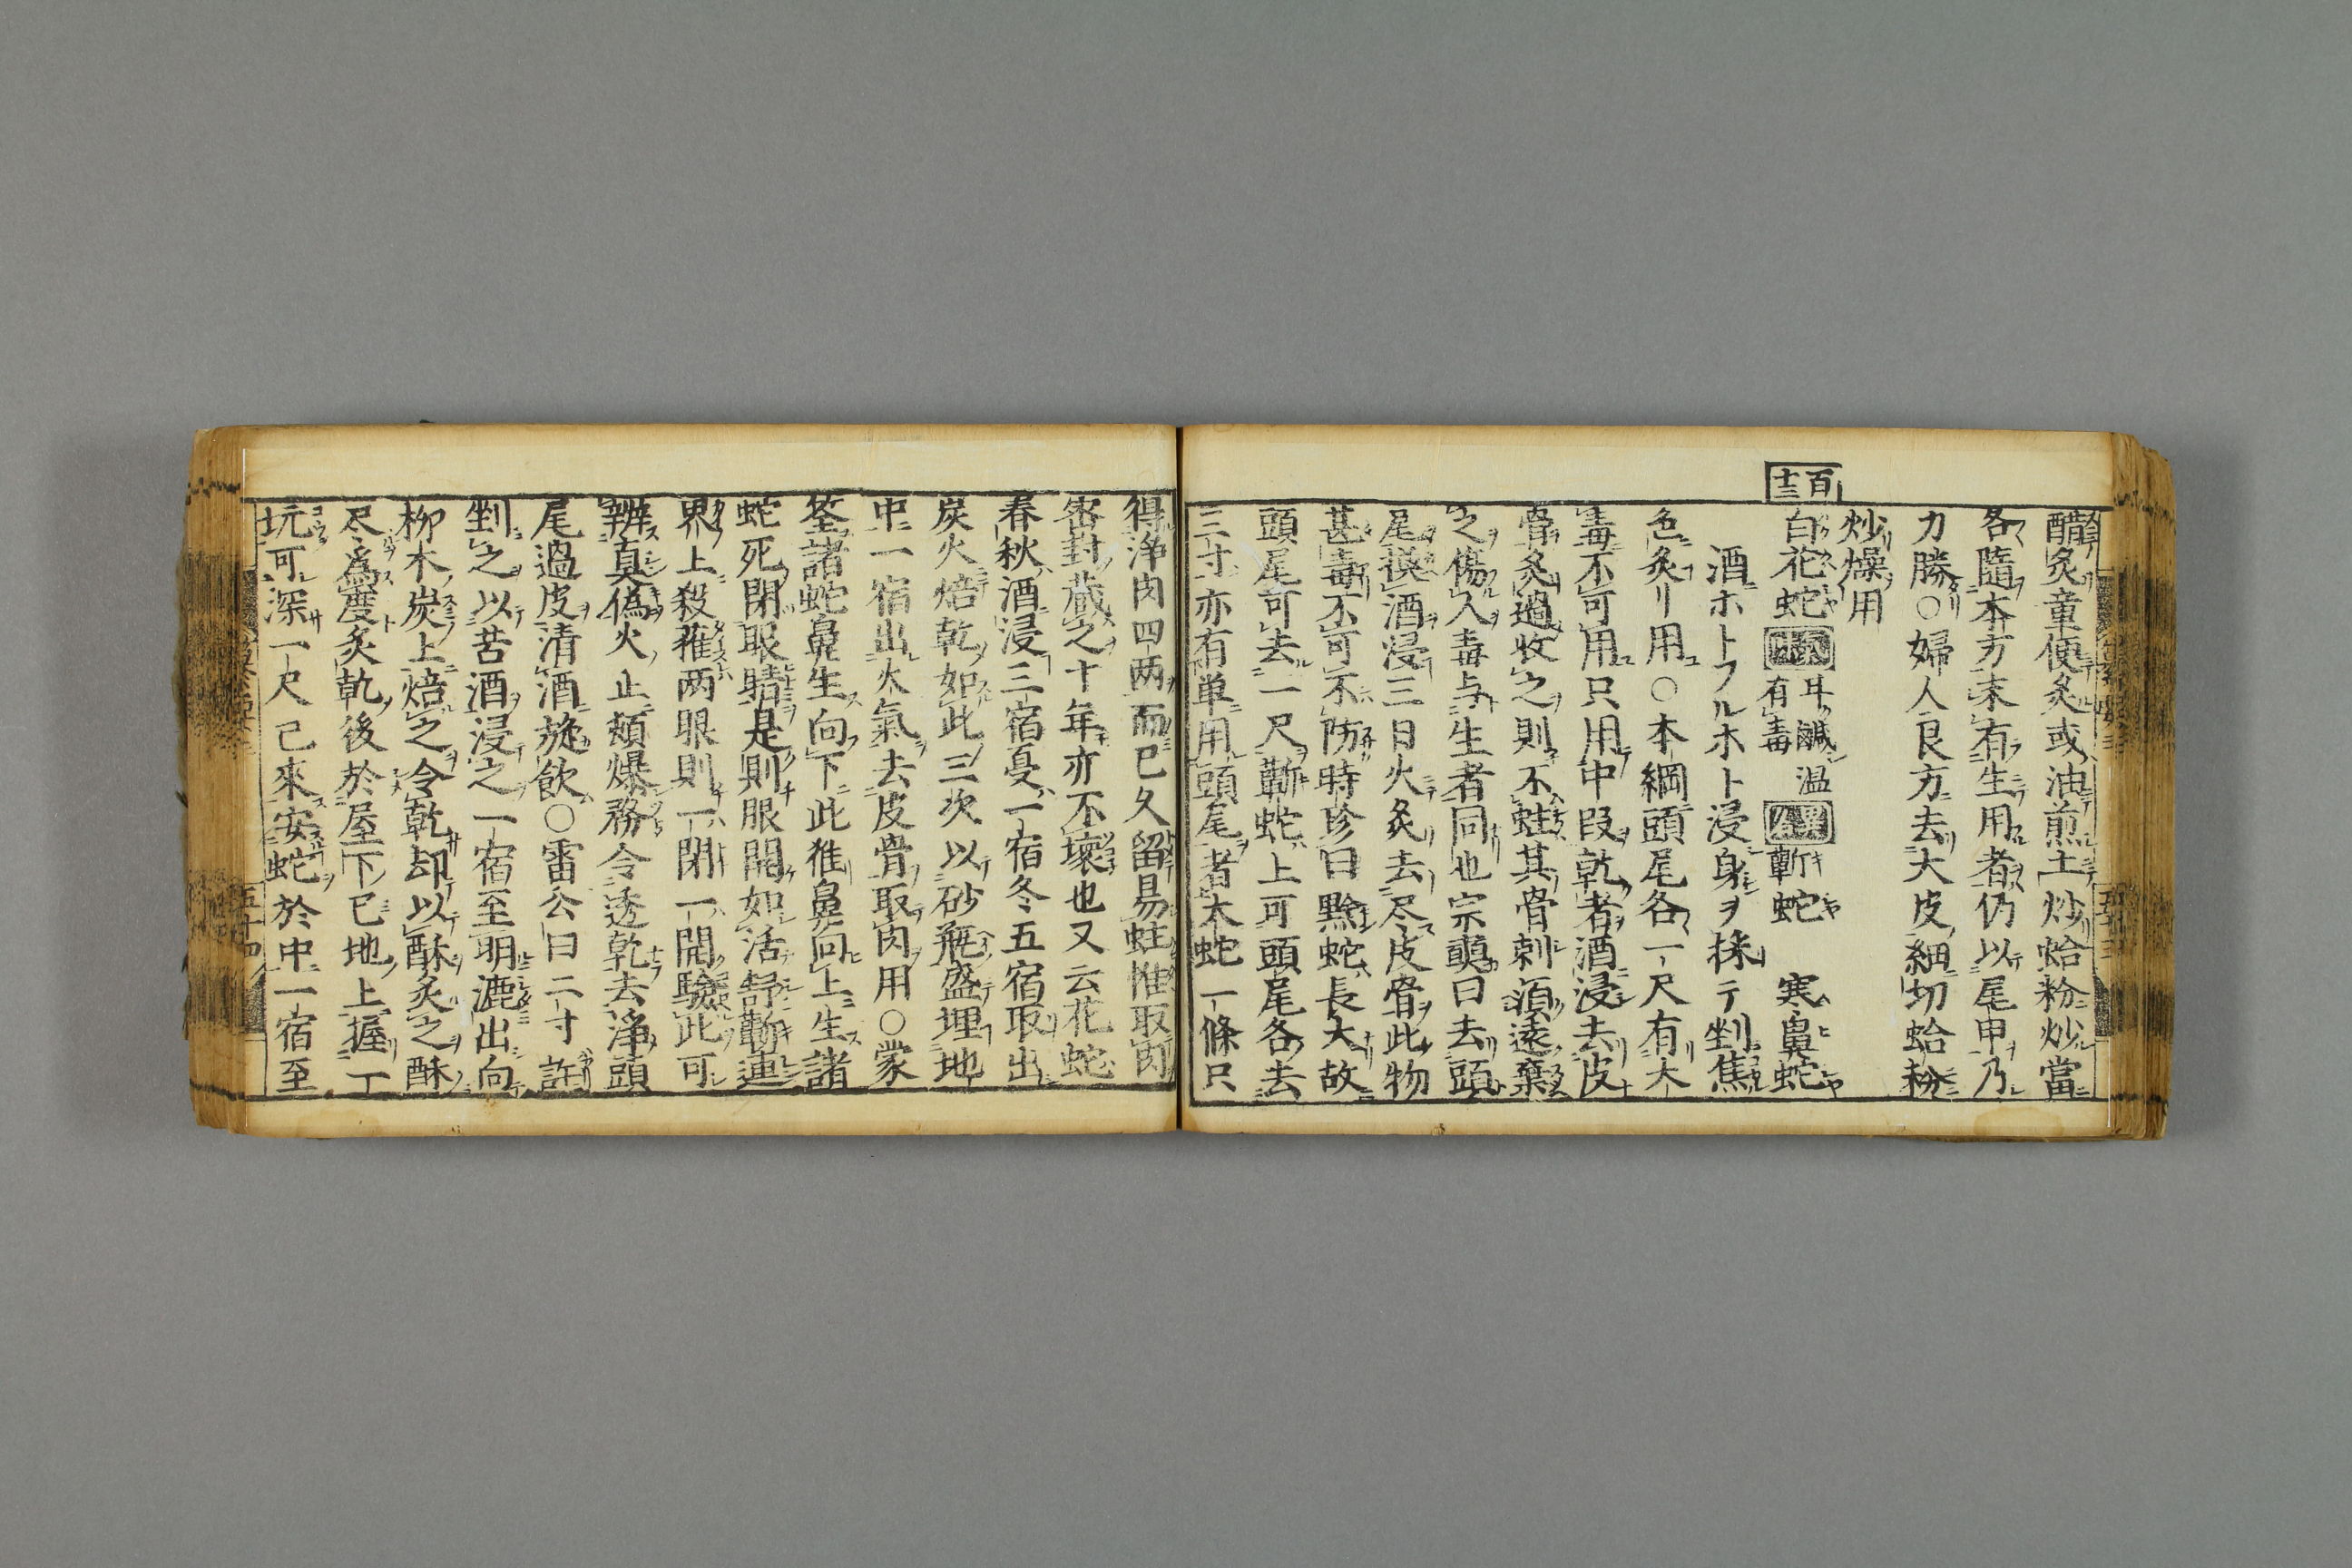 醋炙童便炙或油煎土炒蛤粉炒當
各隨本方末有生用者仍以尾甲乃
力勝○婦人良方去大皮細切蛤粉
炒燥用
百十三
白花蛇 甘鹹温有毒 蘄蛇 寒鼻蛇
酒ホトフルホト浸身ヲ揉テ剉焦
色炙リ用○本綱頭尾各一尺有大
毒不可用只用中段乾者酒浸去皮
骨炙過收之則不蛀其骨刺須遠棄
之傷人毒与生者同也宗奭曰去頭
尾換酒浸三日火炙去尽皮骨此物
甚毒不可不防時珍曰黔蛇長大故
頭尾可去一尺蘄蛇上可頭尾各去
三寸亦有単用頭尾者大蛇一條只
得浄肉四两而已久留易蛀惟取肉
密封藏之十年亦不壞也又云花蛇
春秋酒浸三宿夏一宿冬五宿取出
炭火焙乾如此三次以砂瓶盛埋地
中一宿出火氣去皮骨取肉用○蒙
筌諸蛇鼻生向下此獨鼻向上生諸
蛇死閉眼睛是則眼開如活舒蘄連
界上殺雖两眼則一閉一開驗此可
辨真偽火止頻爆務令透乾去浄頭
尾過皮清酒旋飲○雷公曰二寸許
剉之以苦酒浸之一宿至明漉出向
柳木炭上焙之令乾却以酥炙之酥
尽為度炙乾後於屋下巳地上握一
坑可深一尺已來安蛇於中一宿至
五十四